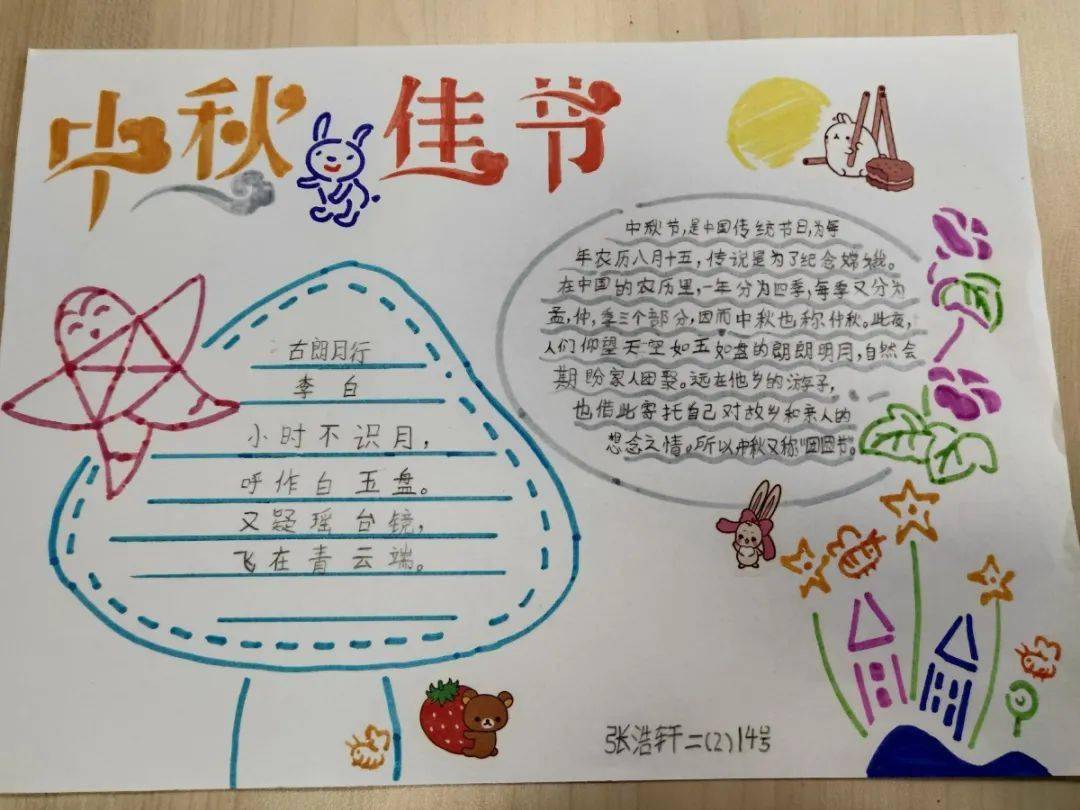 中秋佳节
古朗月行
李白
小时不识月，
呼作白玉盘。
又疑瑶台镜，
飞在青云端。
中秋节，是中国传统节日，为每
年农历八月十五，传说是为了纪念嫦娥。
在中国的农历里，一年分为四季，每季又分为
孟，仲，季三个部分，因而中秋也称仲秋。此夜，
人们仰望天空如玉如盘的朗朗明月，自然会
期盼家人团聚。远在他乡的游子，
也借此寄托自己对故乡和亲人的
想念之情。所以中秋又称“团圆节”。
张浩轩二(2)14号